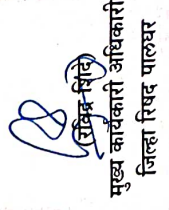 (रविंद्र शिंदे)
मुख्य कार्यकारी अधिकारी
जिल्हा रिषद पालघर